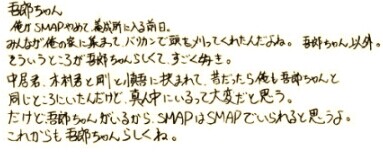 吾郎ちゃん
俺がSMAPやめて、養成所に入る前日。
みんなが俺の家に集まって、バリカンで頭を刈ってくれたんだよね。吾郎ちゃん以外。
そういうところが吾郎ちゃんらしくて、すごく好き。
中居君、木村君と剛と慎吾に挟まれて、昔だったら俺も吾郎ちゃんと
同じところにいたんだけど、真ん中にいるって大変だと思う。
だけど吾郎ちゃんがいるから、SMAPはSMAPでいられると思うよ。
これからも吾郎ちゃんらしくね。